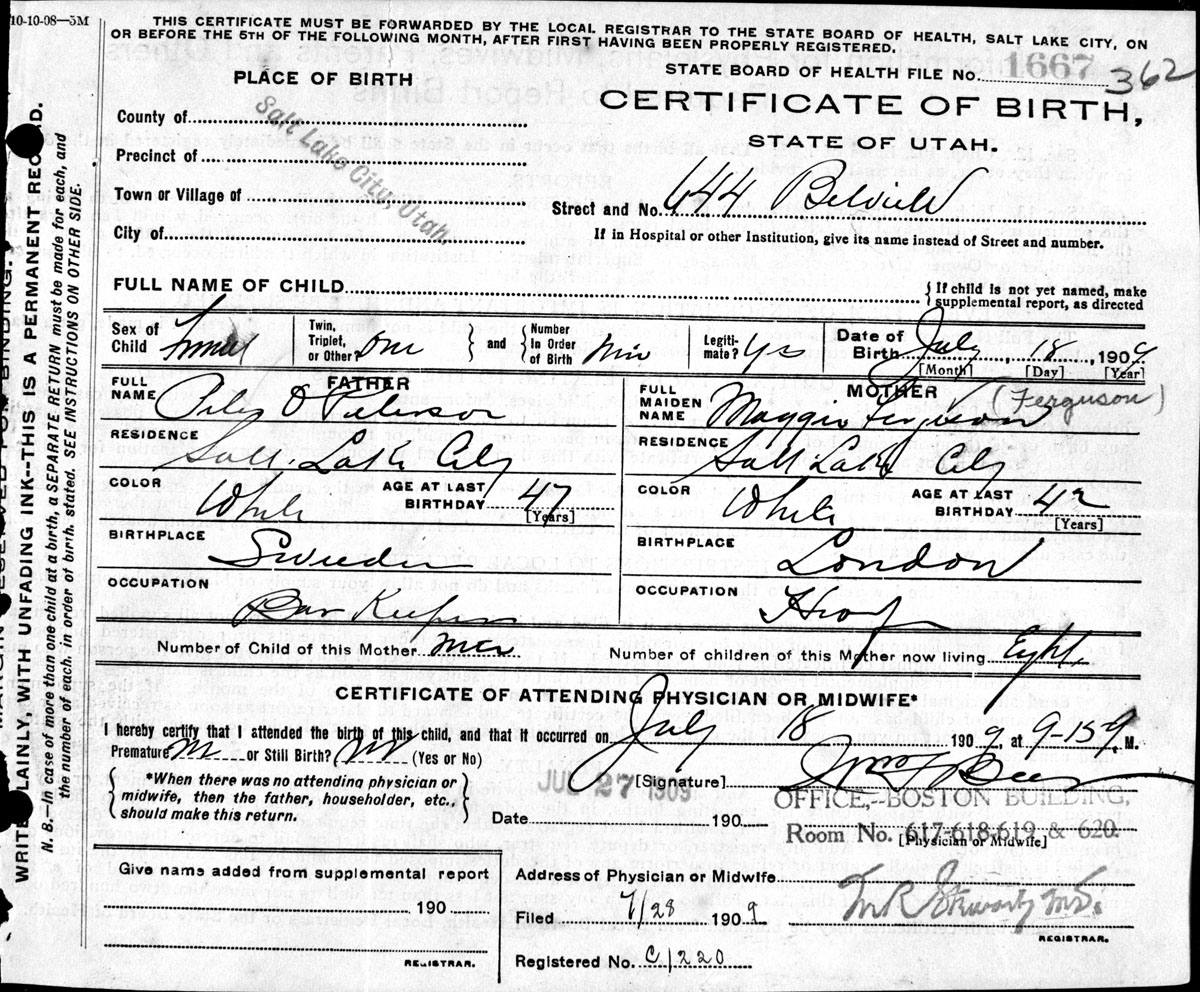 10-10-08—5M
THIS CERTIFICATE MUST BE FORWARDED BY THE LOCAL REGISTRAR TO THE STATE BOARD OF HEALTH, SALT LAKE CITY, ON
OR BEFORE THE 5TH OF THE FOLLOWING MONTH, AFTER FIRST HAVING BEEN PROPERLY REGISTERED.
PLACE OF BIRTH
STATE BOARD OF HEALTH FILE No. 1667 362
CERTIFICATE OF BIRTH,
STATE OF UTAH.
County of
Precinct of
Town or Village of
City of
Salt Lake City, Utah.
Street and No. 644 Belview
If in Hospital or other Institution, give its name instead of Street and number.
FULL NAME OF CHILD
{ If child is not yet named, make
supplemental report, as directed
Sex of Child Female
Twin, Triplet, or Other? One } and { Number In Order of Birth
Legiti-mate? Yes
Date of Birth July 18, 1909
[Month] [Day] [Year]
FATHER
FULL NAME O Peterson
RESIDENCE Salt Lake City
COLOR White AGE AT LAST BIRTHDAY 47
[Years]
BIRTHPLACE Sweden
OCCUPATION Bar Keeper
MOTHER
FULL MAIDEN NAME Maggie Ferguson (Ferguson)
RESIDENCE Salt Lake City
COLOR White AGE AT LAST BIRTHDAY 42
[Years]
BIRTHPLACE London
OCCUPATION
Number of Child of this Mother
Number of children of this Mother now living Eight
CERTIFICATE OF ATTENDING PHYSICIAN OR MIDWIFE*
I hereby certify that I attended the birth of this child, and that it occurred on July 18 1909, at 9-15 M.
Premature or Still Birth? (Yes or No)
{ *When there was no attending physician or
midwife, then the father, householder, etc.,
should make this return. }
JUL 27 1909
[Signature]
Date 190
OFFICE,--BOSTON BUILDING,
Room No. 617-618-619 & 620.
[Physician or Midwife]
Give name added from supplemental report
190
REGISTRAR.
Address of Physician or Midwife
Filed 7/28 1909
REGISTRAR.
Registered No. C/220
WRITE PLAINLY, WITH UNFADING INK--THIS IS A PERMANENT RECORD.
N. B.—In case of more than one child at a birth, a SEPARATE RETURN must be made for each, and
the number of each, in order of birth, stated. SEE INSTRUCTIONS ON OTHER SIDE.